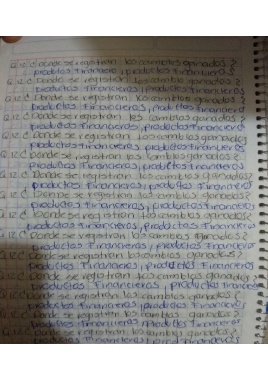 Q.12.C Donde se registran los cambios ganados?
productos financiero, productos financieros
Q.12.C Donde se registran los cambios ganados?
productos financieros, productos financieros
Q.12.C Donde se registran los cambios ganados?
productos financieros, productos financieros
Q.12.C Donde se registran los cambios ganados?
productos financieros, productos financieros
Q.12.C Donde se registran los cambios ganados?
productos financieros, productos financieros
Q.12.C Donde se registran los cambios ganados?
productos financieros, productos financieros
Q.12.C Donde se registran los cambios ganados?
productos financieros, productos financieros
Q.12.C Donde se registran los cambios ganados?
productos financieros, productos financieros
12.C Donde se registran los cambios ganados?
productos financieros, productos financieros
12.C Donde se registran los cambios ganados?
productos financieros, productos financieros
Donde se registran los cambios ganados?
productos financieros, productos financieros
Donde se registran los cambios ganados
productos financieros, productos financieros
Donde se registran los cambios ganados?
productos financieros, productos financieros
Donde se registran los cambios ganados?
productos financieros, productos financieros